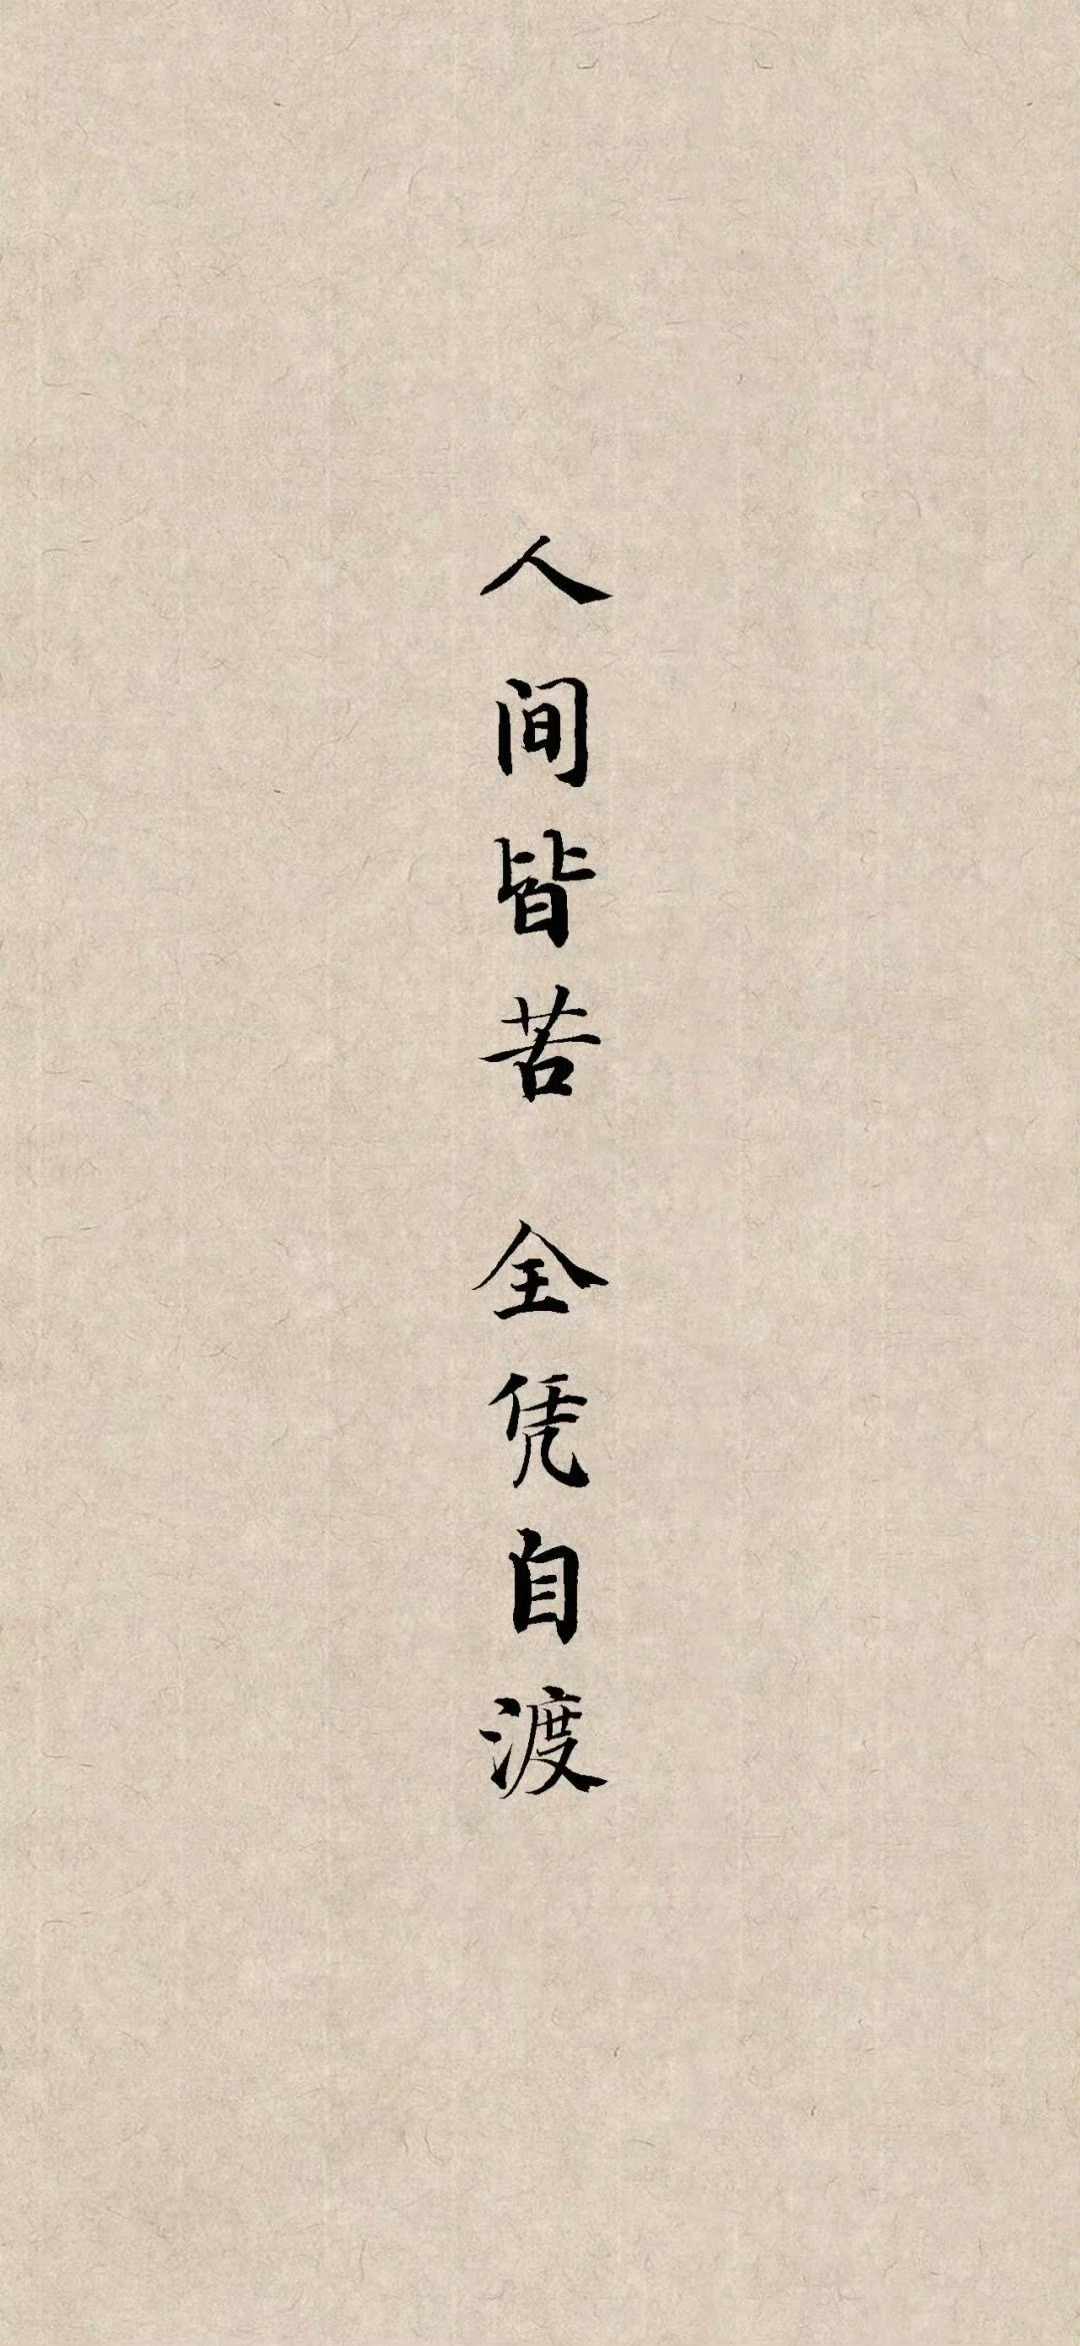 人间皆苦 全凭自渡